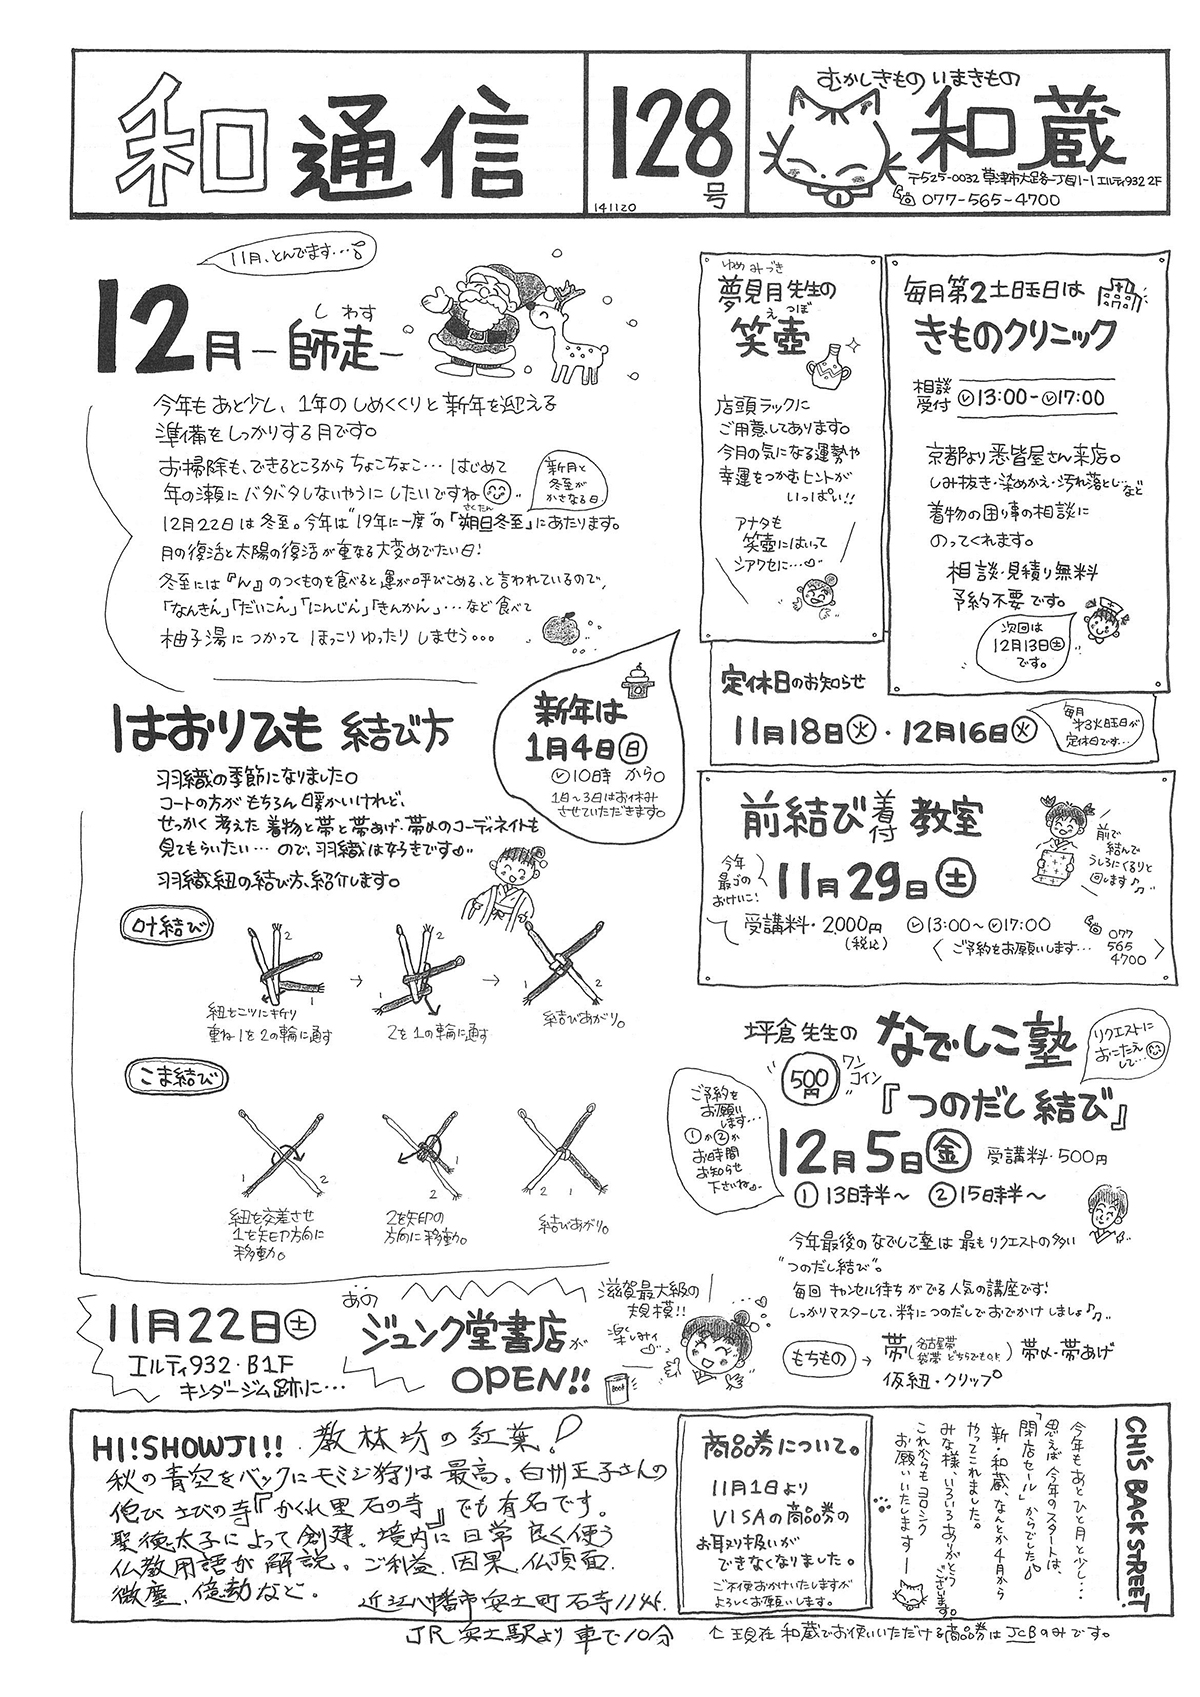 和通信
128号
141120
むかしきもの いまきもの
和蔵
〒525-0032 草津市大路一丁目1-1 エルティ932 2F
077-565-4700
11月、とんでます…
しわす
12月 -師走-
今年もあと少し、1年のしめくくりと新年を迎える
準備をしっかりする月です。
お掃除も、できるところからちょこちょこ… はじめて
年の瀬にバタバタしないやうにしたいですね
新月と
冬至が
かさなる日
さくたん
12月22日は冬至。今年は"19年に一度"の「朔旦冬至」にあたります。
月の復活と太陽の復活が重なる大変めでたい日!
冬至には『ん』のつくものを食べると運が呼びこめる、と言われているので、
「なんきん」「だいこん」「にんじん」「きんかん」…など食べて
柚子湯につかって ほっこりゆったりしませう…
ゆめみづき
夢見月先生の
えつぼ
笑壺
店頭ラックに
ご用意してあります。
今月の気になる運勢や
幸運をつかむヒントが
いっぱい!!
アナタも
笑壺にはいって
シアワセに…
毎月第2土曜日は
きものクリニック
相談受付 13:00-17:00
京都より悉皆屋さん来店。
しみ抜き・染めかえ・汚れ落とし…など
着物の困り事の相談に
のってくれます。
相談・見積り無料
予約不要です。
次回は
12月13日(土)
です。
定休日のお知らせ
11月18日(火)・12月16日(火)
毎月
第3火曜日が
定休日です…
新年は
1月4日(日)
10時から。
1日〜3日はお休み
させていただきます。
はおりひも 結び方
羽織の季節になりました。
コートの方がもちろん暖かいけれど、
せっかく考えた着物と帯と帯あげ・帯〆のコーディネイトも
見てもらいたい…ので、羽織は好きです
羽織紐の結び方、紹介します。
叶結び
1 2
紐を二ツに折り
重ね1を2の輪に通す
→
1 2
2を1の輪に通す
→
2 1
結びあがり。
こま結び
1 2
紐を交差させ
1を矢印方向に
移動。
2 1
2を矢印の
方向に移動。
1 2
結びあがり。
前結び着付教室
今年
最ゴの
おけいこ!
11月29日(土)
前で
結んで
うしろにくるりと
回します♪
受講料・2,000円
(税込)
13:00〜17:00
ご予約をお願いします…
077
565
4700
坪倉先生の なでしこ塾
リクエストに
おこたえ
して…
500円
ワンコイン
『つのだし結び』
ご予約を
お願い
します…
①か②か
お時間
お知らせ
下さいね
12月5日(金) 受講料・500円
①13時半〜 ②15時半〜
今年最後のなでしこ塾は最もリクエストの多い
"つのだし結び"。
毎回 キャンセル待ちがでる人気の講座です!
しっかりマスターして、粋につのだしでおでかけしましょ♪
もちもの → 帯(名古屋帯 袋帯 どちらでもOK) 帯〆・帯あげ
仮紐・クリップ
11月22日(土)
エルティ932・B1F
キンダージム跡に…
あの
ジュンク堂書店が
OPEN!!
滋賀最大級の
規模!!
楽しみィ
BOOK
HI!SHOWJI!! 教林坊の紅葉!
秋の青空をバックにモミジ狩りは最高。白州正子さんの
侘びさびの寺『かくれ里 石の寺』でも有名です。
聖徳太子によって創建。境内に日常良く使う
仏教用語が解説。ご利益、因果、仏頂面、
微塵、億劫など。
近江八幡市安土町石寺1145
JR安土駅より車で10分
商品券について。
11月1日より
VISAの商品券の
お取り扱いが
できなくなりました。
ご不便おかけいたしますが
よろしくお願いします。
↑現在 和蔵でお使いいただける商品券はJCBのみです。
CHI'S BACK STREET
今年もあとひと月と少し…
思えば今年のスタートは、
「閉店セール」からでした。
新・和蔵、なんとか4月から
やってこれました。
みな様、いろいろありがとうございます。
これからもヨロシク
お願いいたします